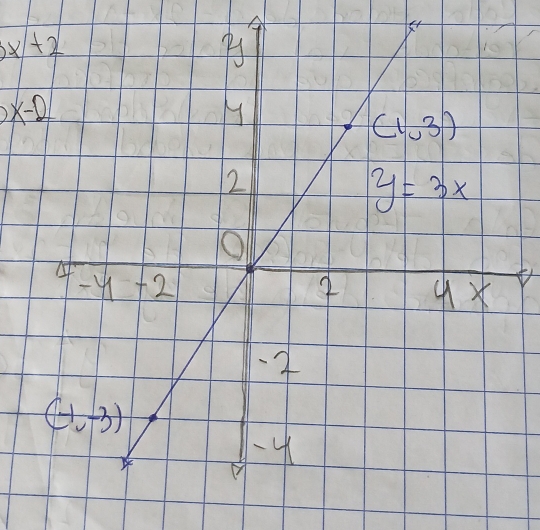 3x+2
y
x-2
4
(1,3)
2
y = 3x
0
-4 -2 2 4 x
-2
(-1,-3)
-4